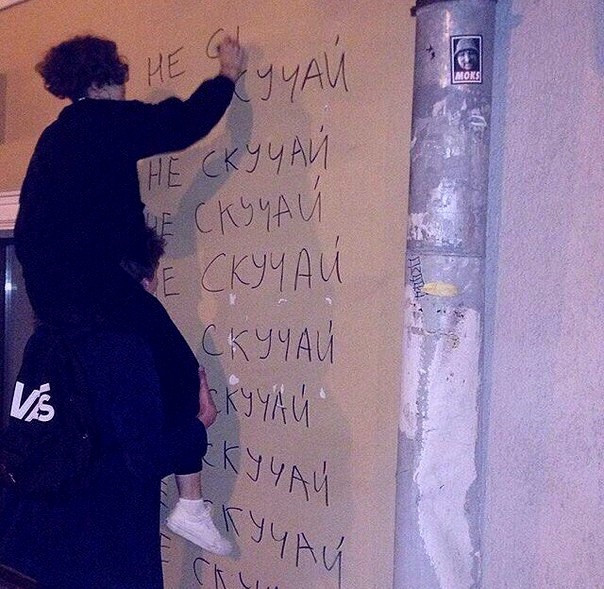 НЕ СКУЧАЙ
НЕ СКУЧАЙ
НЕ СКУЧАЙ
Е СКУЧАЙ
СКУЧАЙ
СКУЧАЙ
СКУЧАЙ
СКУЧАЙ
СКУЧАЙ
MOKS